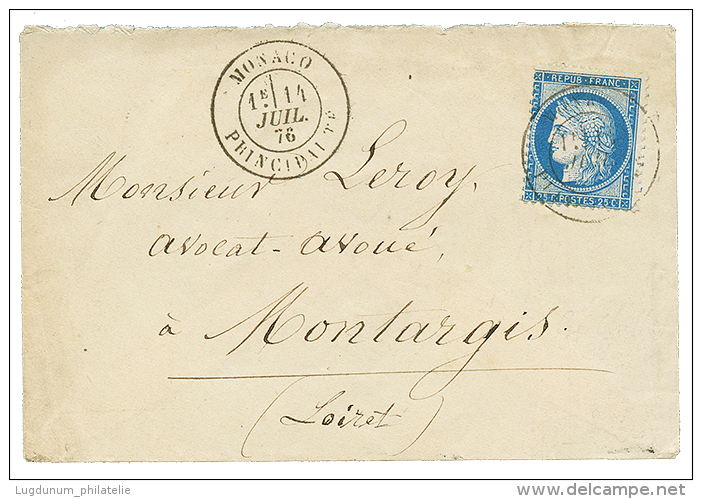 MONACO
1E 14
JUIL.
76
PRINCIPAUTÉ
REPUB. FRANC.
25 C. POSTES 25 C.
Monsieur Leroy,
avocat-avoué,
à Montargis.
(Loiret)
Lugdunum_philatelie
delcampe.net